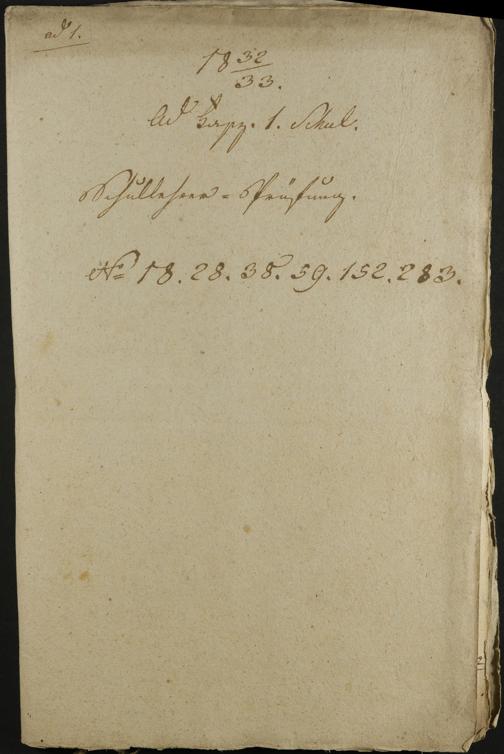 ad 1.
18 32/33.
Ad 1. Schul.
Schullehrer=Prüfung.
No 18. 28. 38. 59. 152. 283.